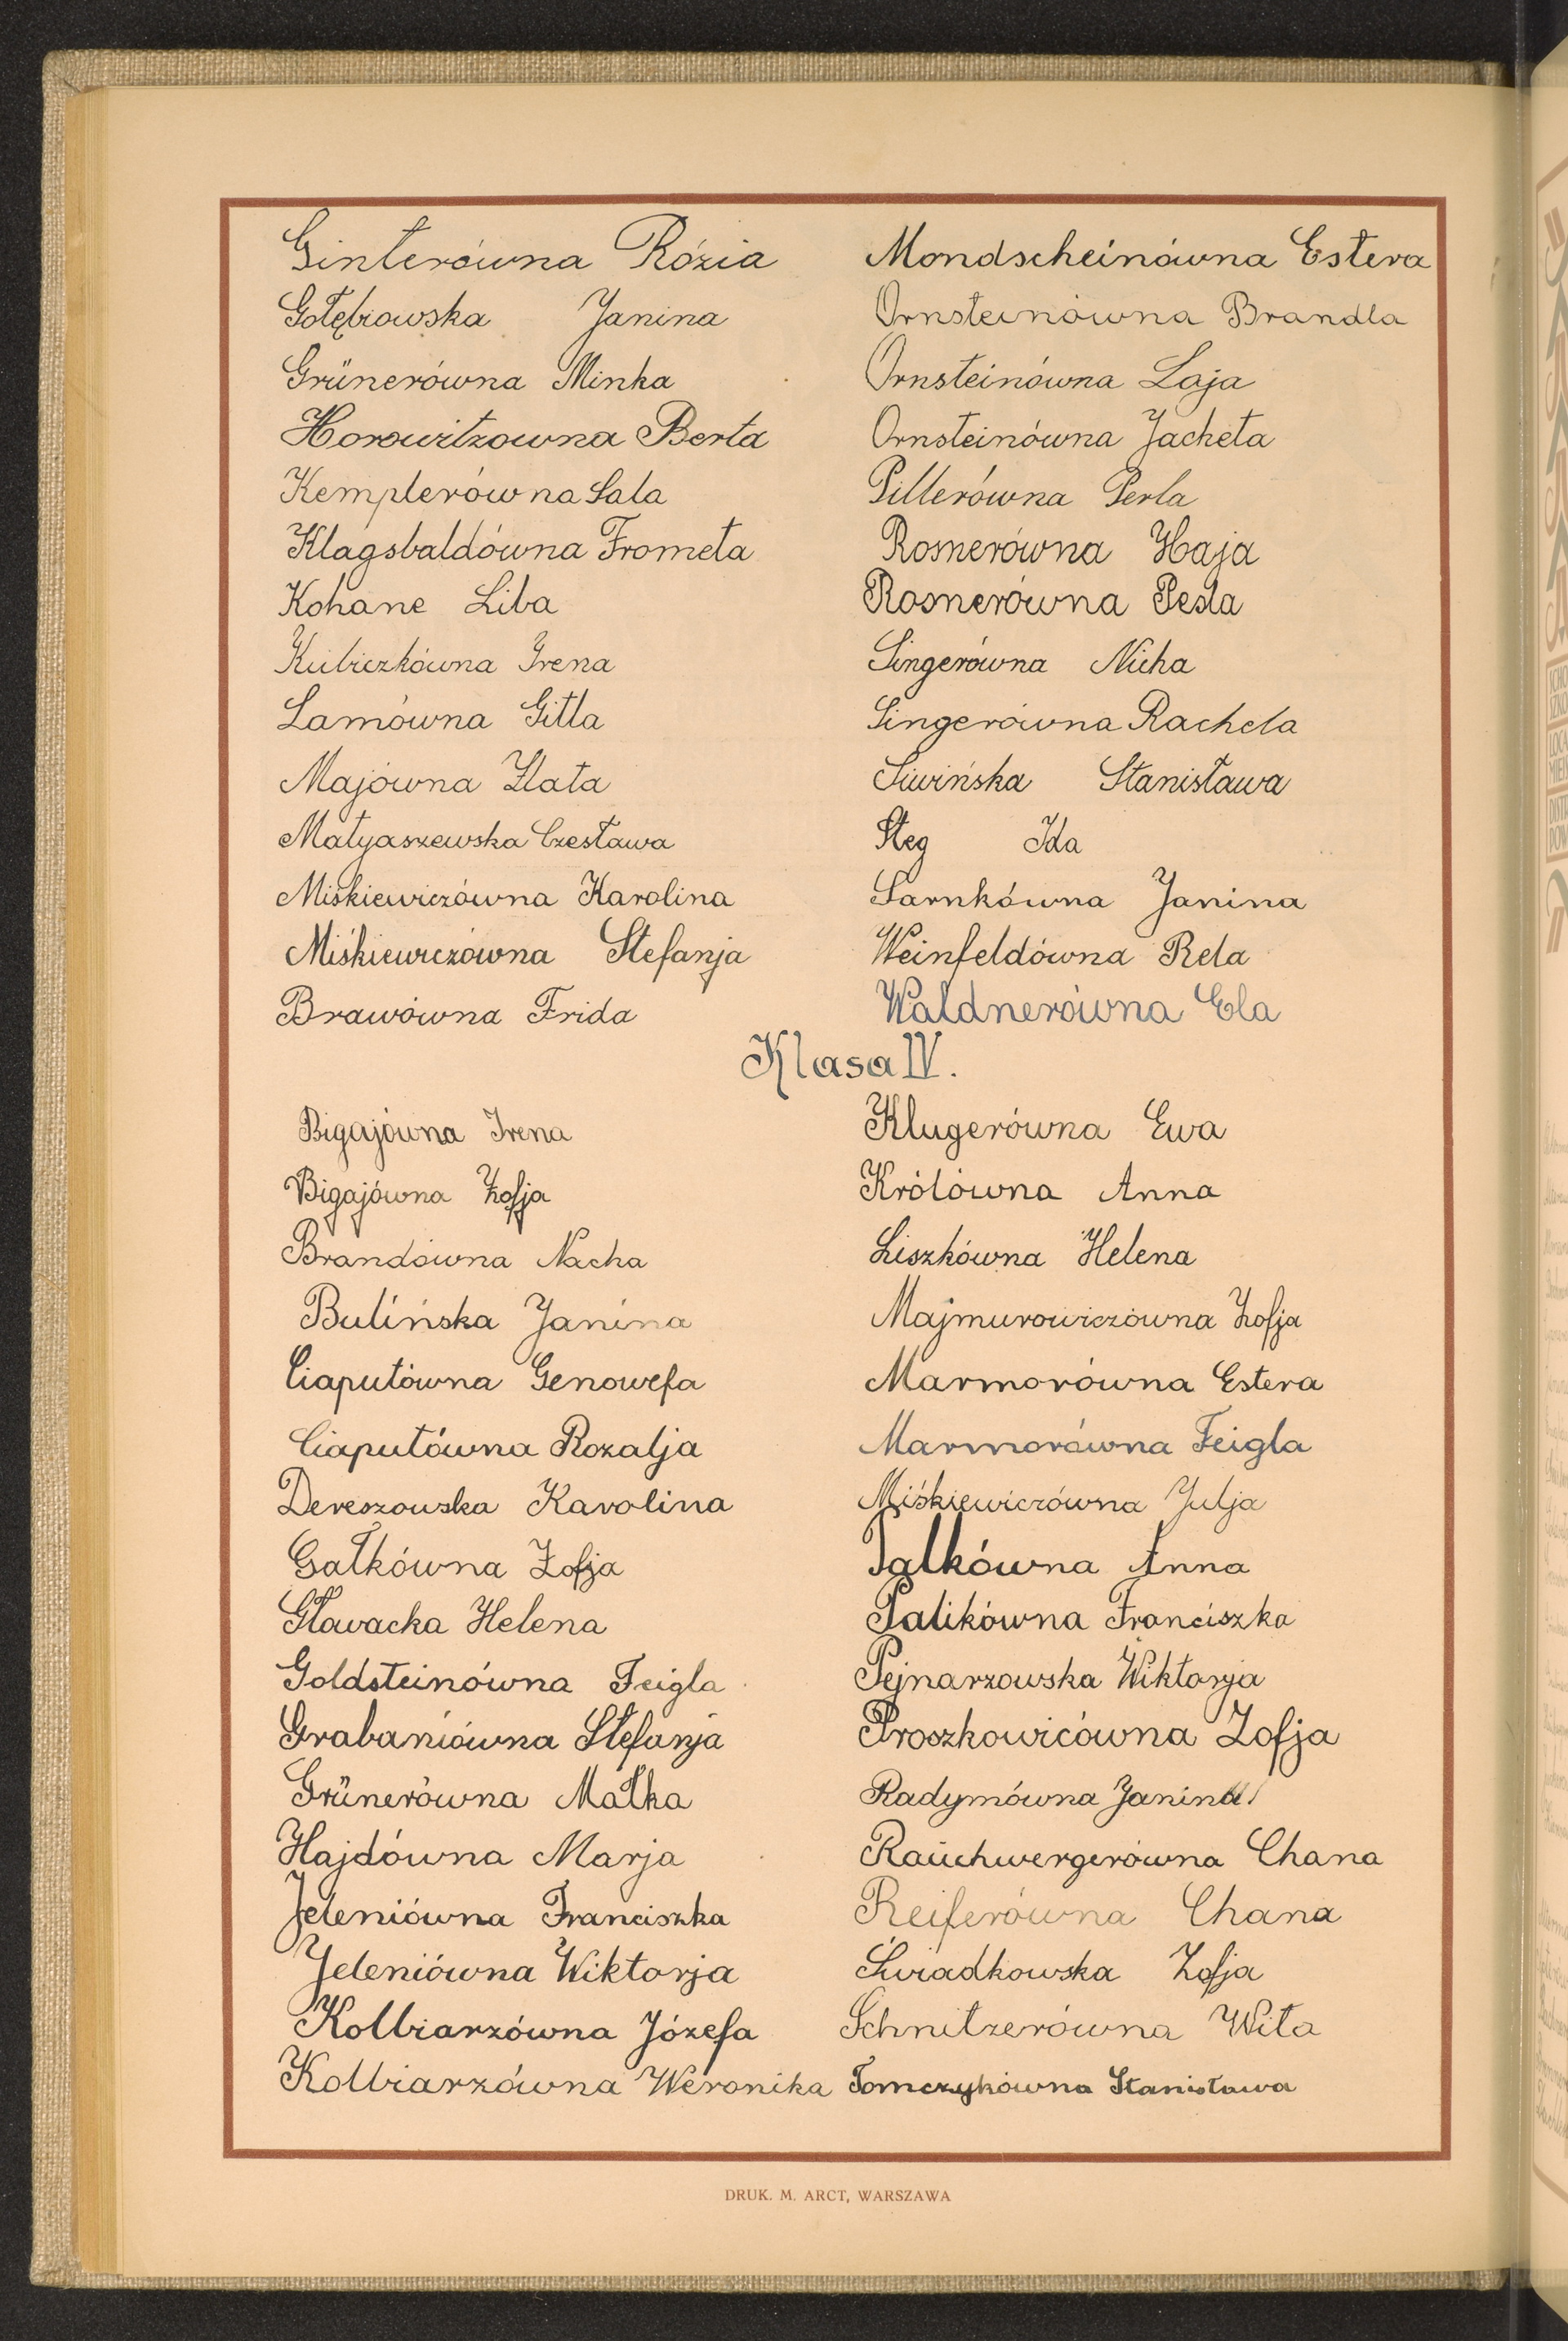 Ginterówna Rózia
Gołębiowska Janina
Grünerówna Minka
Horowitzowna Berta
Kemplerówna Sala
Klagsbaldówna Frometa
Kohane Liba
Kubiczkówna Irena
Lamówna Gitla
Majówna Zlata
Matyaszewska Czesława
Miśkiewiczówna Karolina
Miśkiewiczówna Stefanja
Brawówna Frida
Mondscheinówna Estera
Ornsteinówna Brandla
Ornsteinówna Laja
Ornsteinówna Jacheta
Pillerówna Perla
Rosnerówna Haja
Rosnerówna Pesla
Singerówna Nicha
Singerówna Rachela
Siwińska Stanisława
Steg Ida
Sarnkówna Janina
Weinfeldówna Rela
Waldnerówna Ela
Klasa IV.
Bigajówna Irena
Bigajówna Zofja
Brandówna Nacha
Bulińska Janina
Ciaputówna Genowefa
Ciaputówna Rozalja
Dereszowska Karolina
Gałkówna Zofja
Gławacka Helena
Goldsteinówna Feigla
Grabaniówna Stefanja
Grünerówna Małka
Hajdówna Marja
Jeleniówna Franciszka
Jeleniówna Wiktorja
Kolbiarzówna Józefa
Kolbiarzówna Weronika
Klugerówna Ewa
Królówna Anna
Liszkówna Helena
Majmurowiczówna Zofja
Marmorówna Estera
Marmorówna Feigla
Miśkiewiczówna Julja
Palkówna Anna
Palikówna Franciszka
Pejnarzowska Wiktorja
Proszkowicówna Zofja
Radymówna Janina
Rauchwergerówna Chana
Reiferówna Chana
Świadkowska Zofja
Schnitzerówna Wita
Tomczykówna Stanisława
DRUK. M. ARCT, WARSZAWA